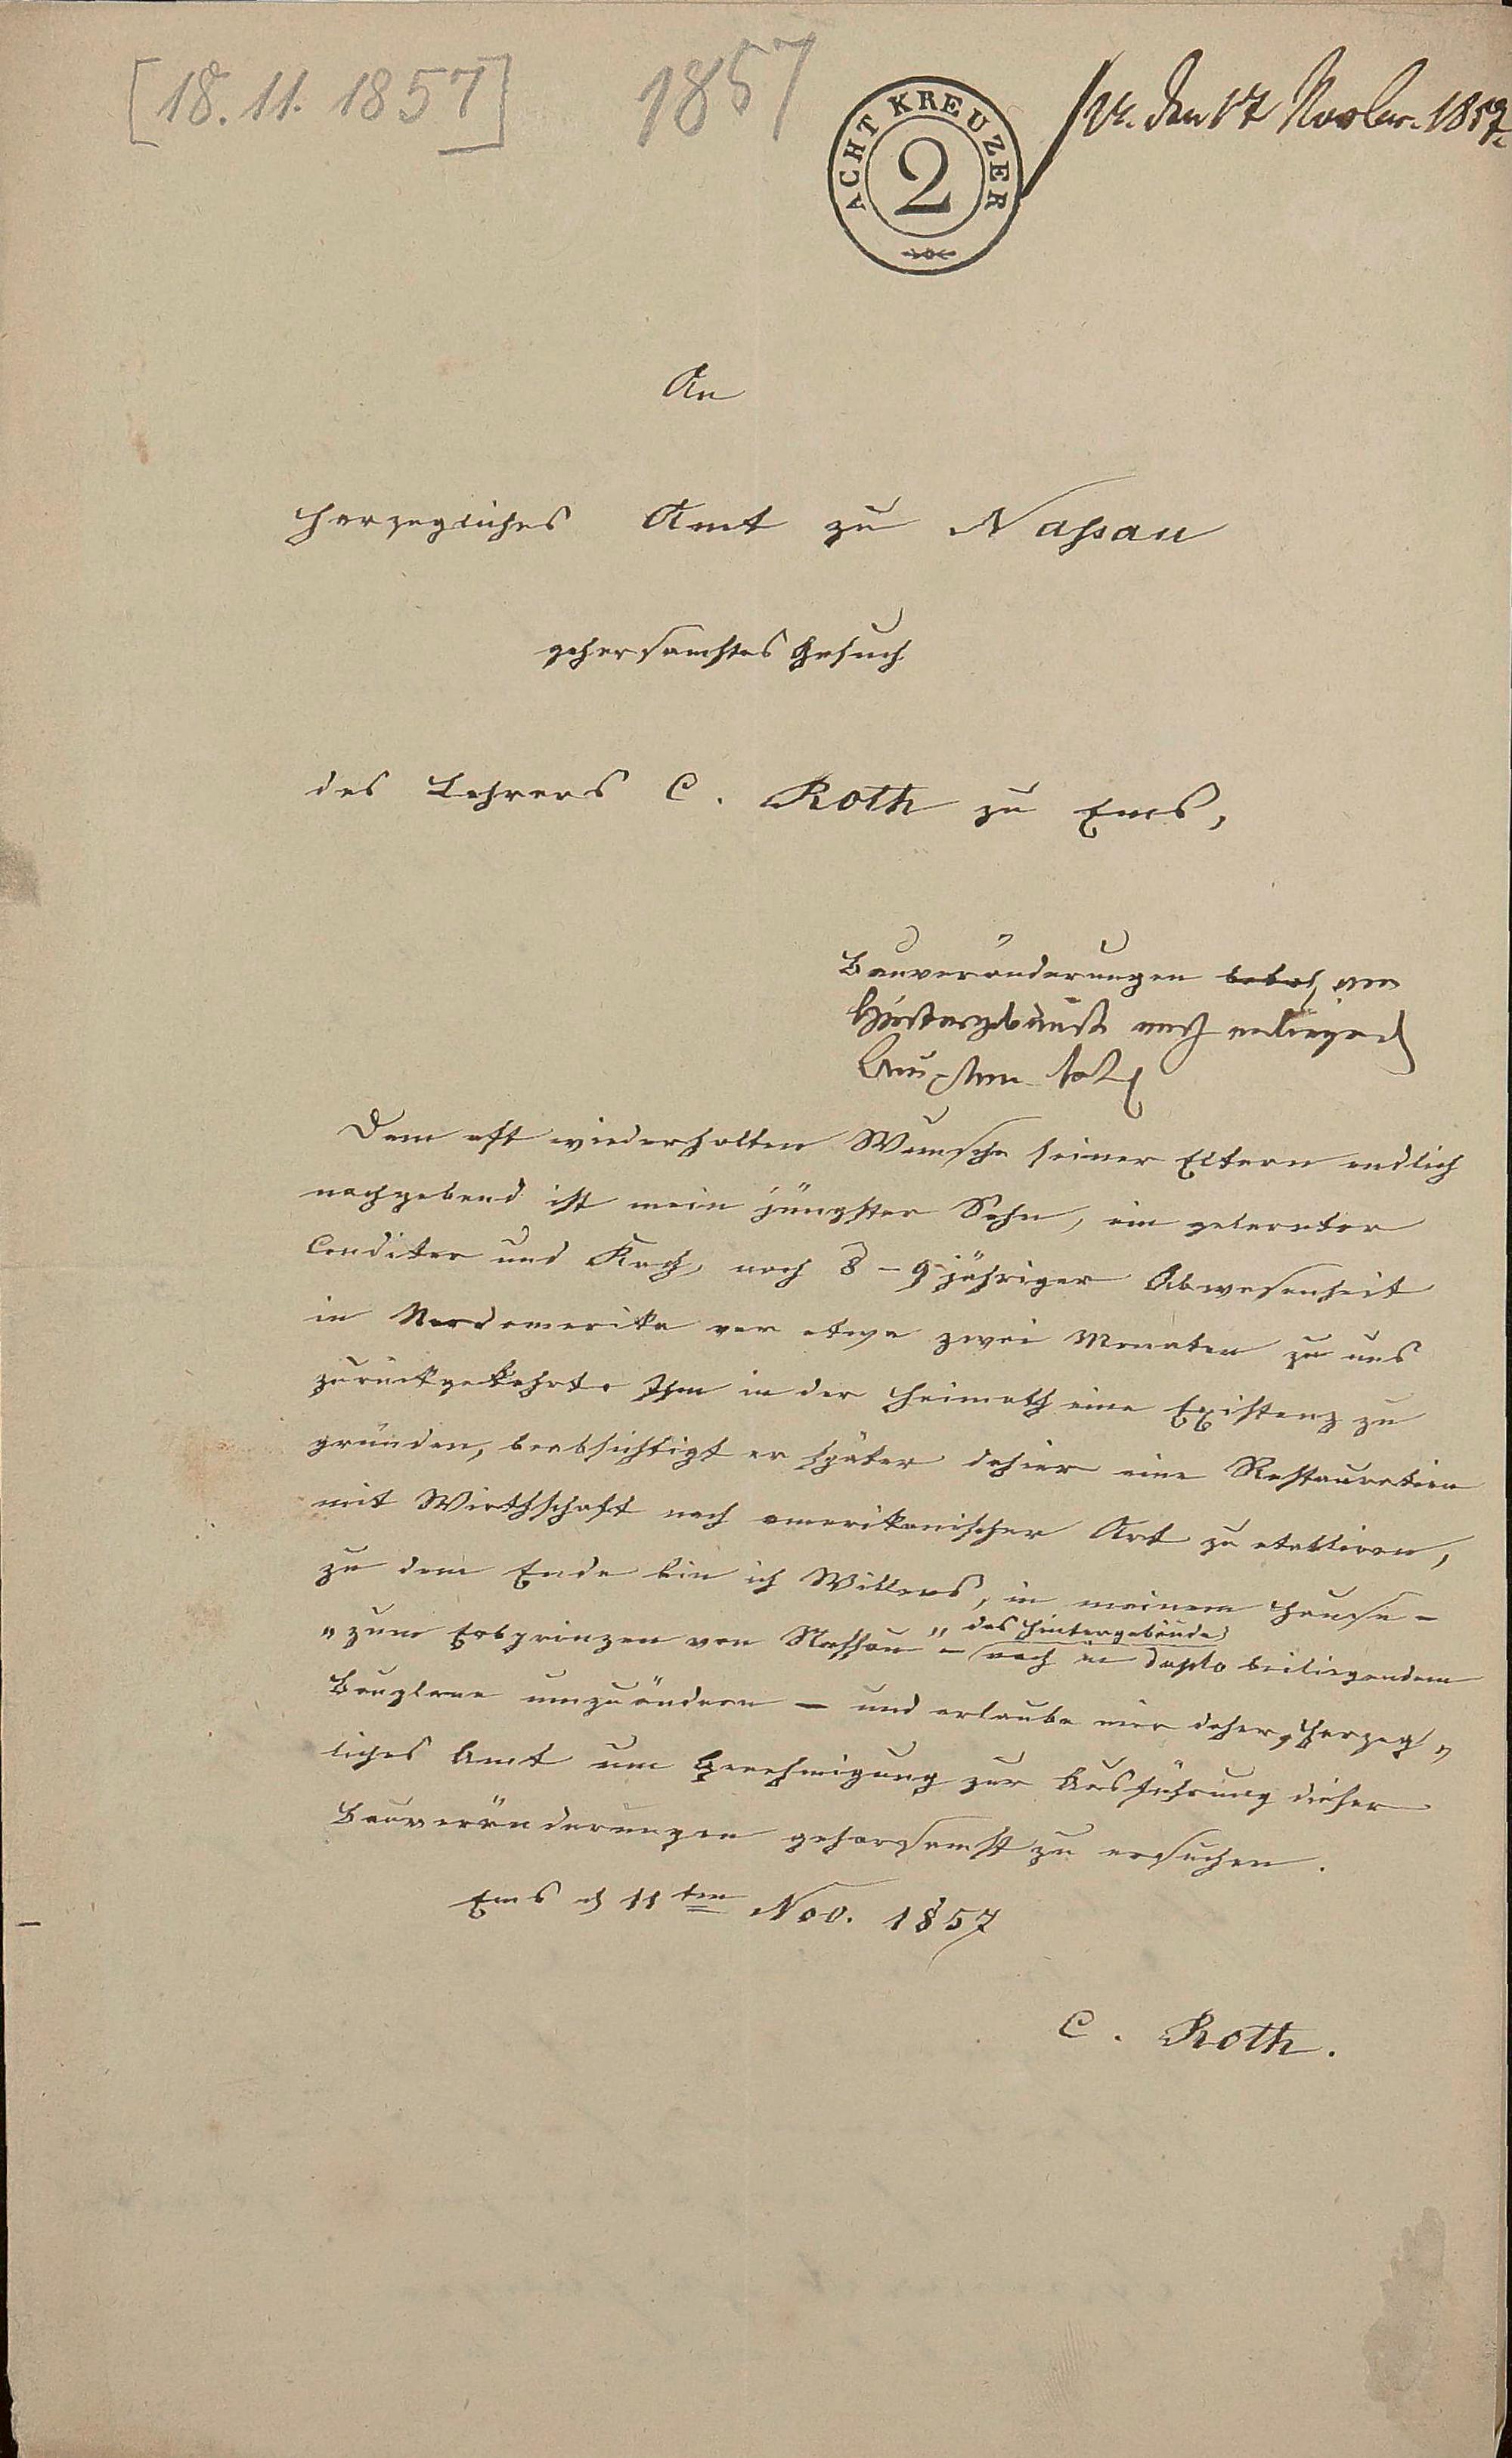 [18.11.1857]
1857
ACHT KREUZER
2
pr. den 17 Novbr. 1857.
An
Herzogliches Amt zu Nassau
gehorsamstes Gesuch
des Lehrers C. Roth zu Ems,
Bauveränderungen am
Hintergebäude nach anliegend
Dem oft wiederholten Wunsche seiner Eltern endlich
nachgebend ist mein jüngster Sohn, ein gelernter
Conditor und Koch, nach 8-9 jähriger Abwesenheit
in Nordamerika vor etwa zwei Monaten zu uns
zurückgekehrt. Ihm in der Heimath eine Existenz zu
gründen, beabsichtigt er später dahier eine Restauration
mit Wirthschaft nach amerikanischer Art zu etabliren,
zu dem Ende bin ich Willens, in meinem Hause -
das Hintergebäude
"zum Erbprinzen von Nassau" - nach in duplo beiliegendem
Bauplane umzuändern - und erlaube mir daher, Herzog-
liches Amt um Genehmigung zur Ausführung dieser
Bauveränderungen gehorsamst zu ersuchen.
Ems d 11ten Nov. 1857
C. Roth.